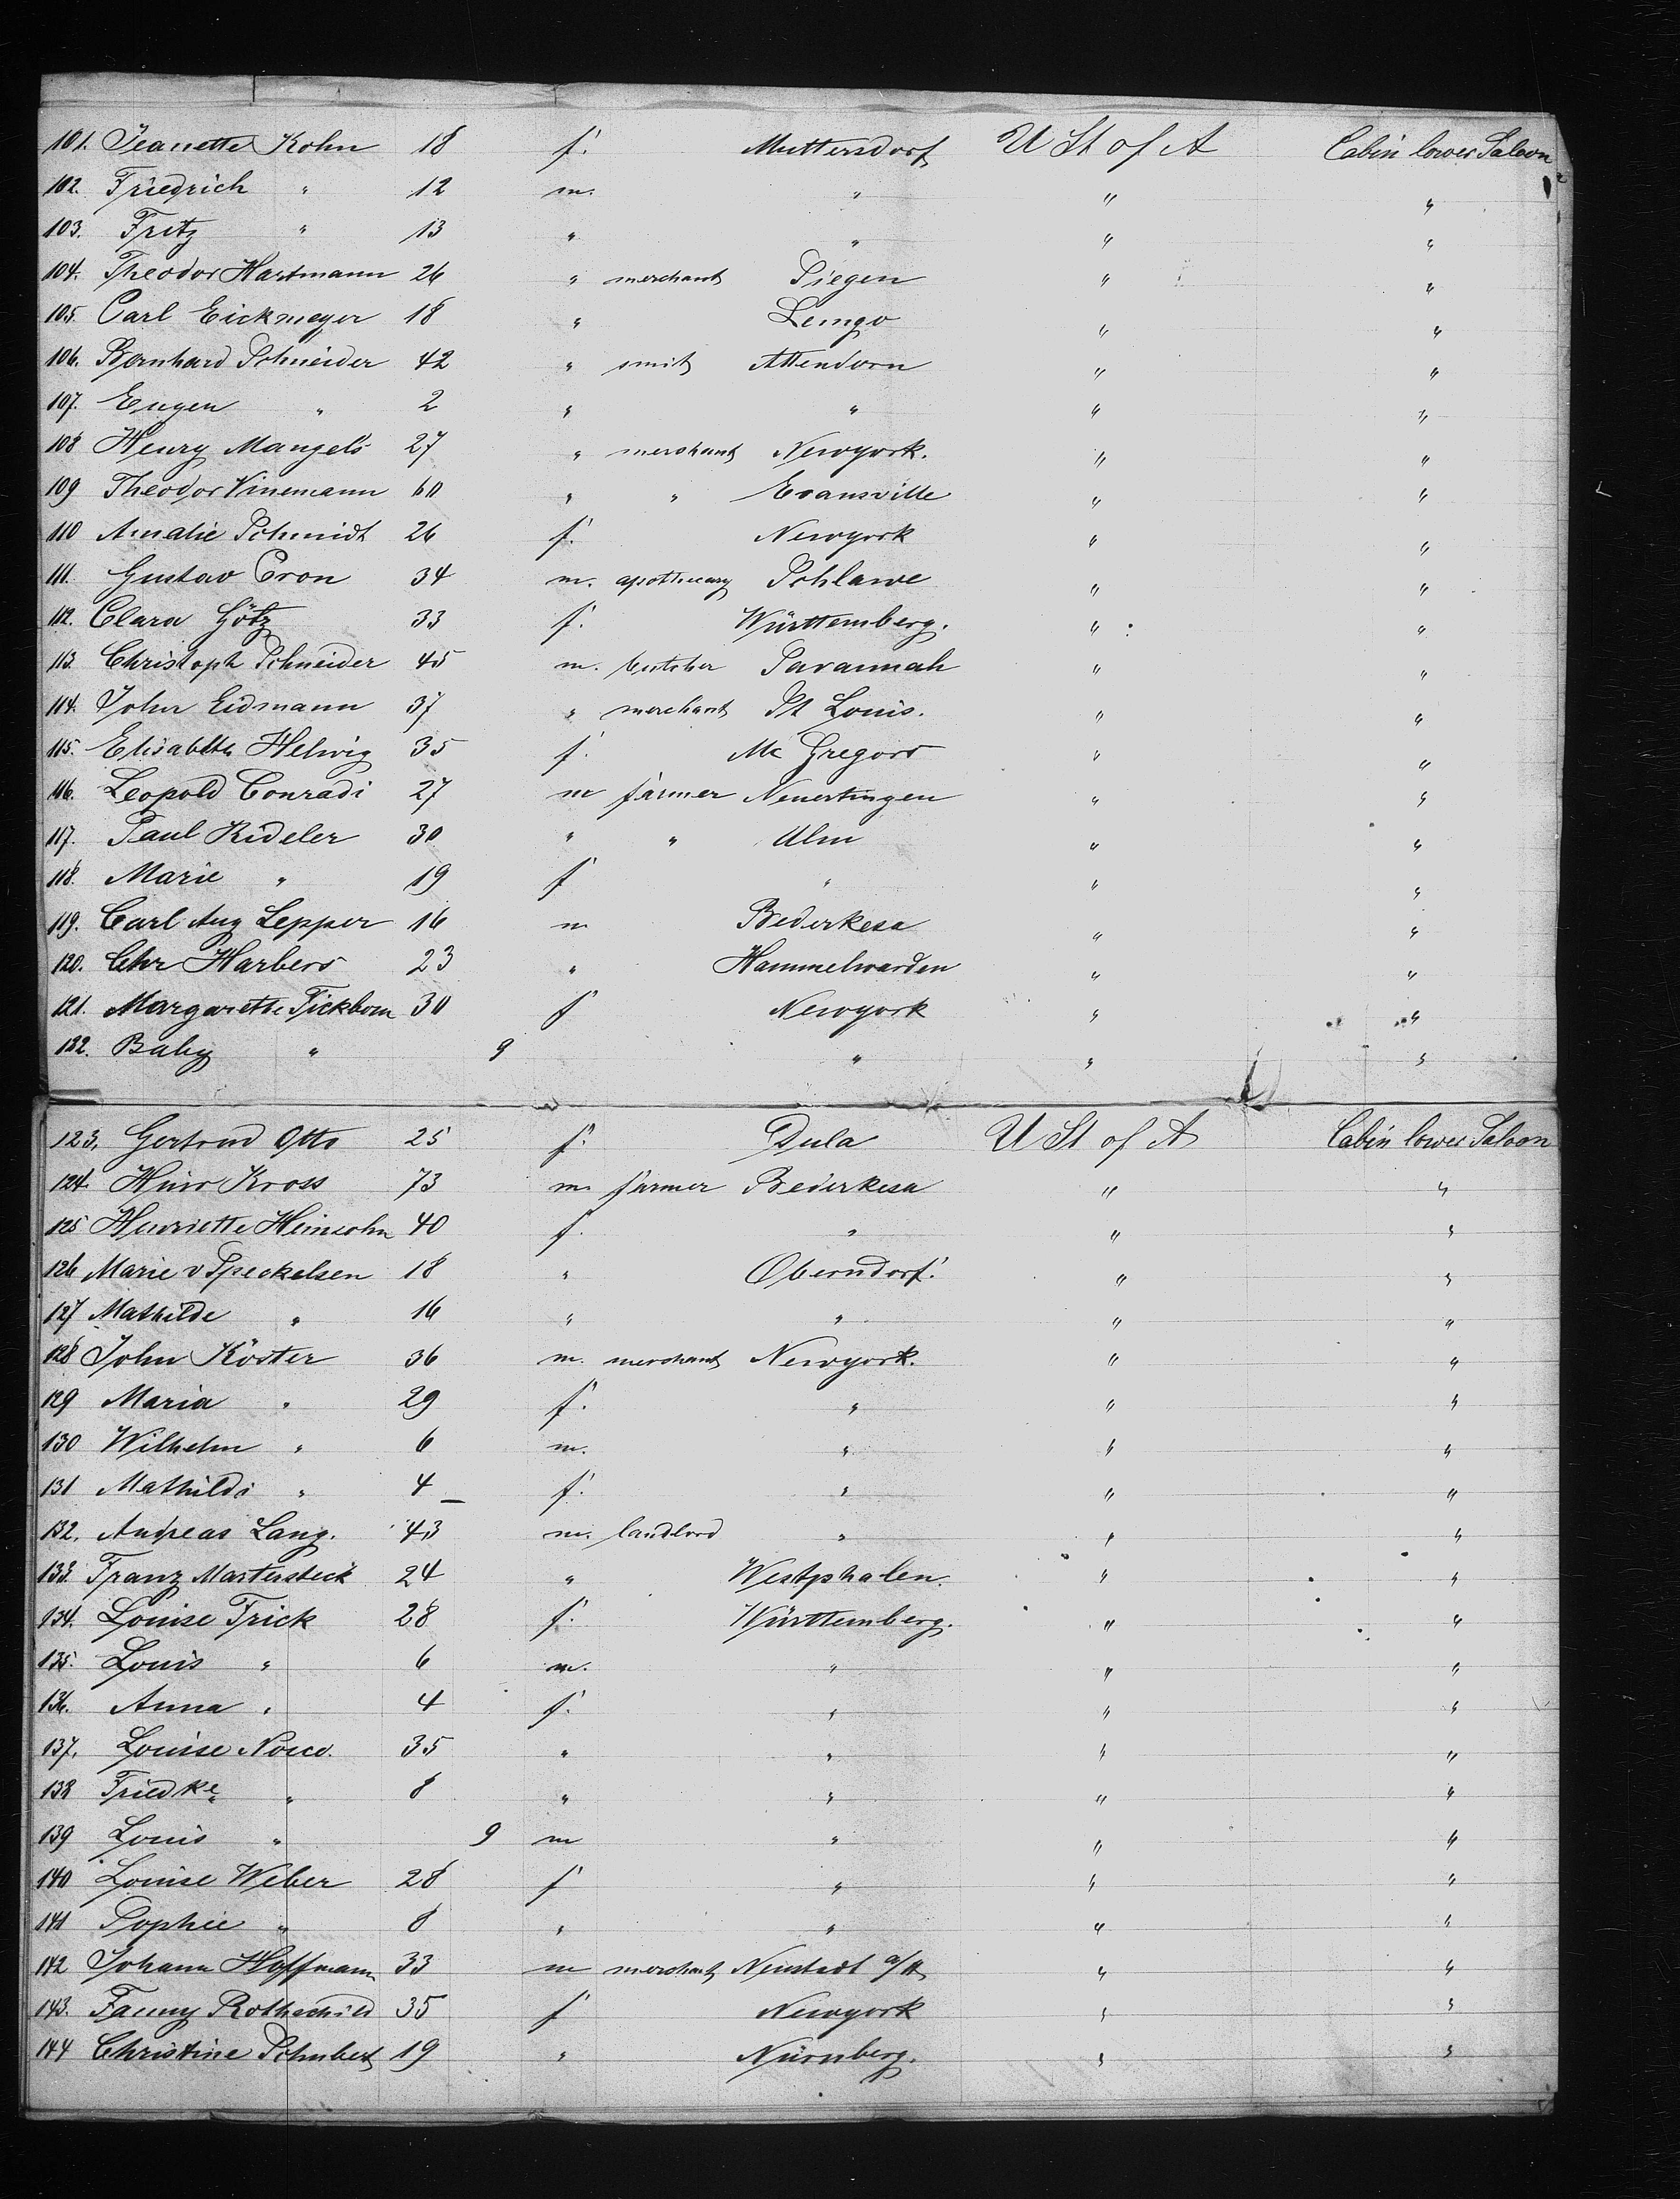 101. Jeanette Kohn 18 f. Muttersdorf U St of A Cabin lower Saloon
102. Friedrich " 12 m. " " "
103. Fritz " 13 " " " "
104. Theodor Hartmann 26 " merchant Siegen " "
105. Carl Eickmeyer 18 " Lemgo " "
106. Bernhard Schneider 42 " smit Attendorn " "
107. Eugen " 2 " " " "
108 Henry Mangels 27 " merchant Newyork. " "
109 Theodor Vinemann 60 " " Evansville " "
110 Amalie Schmidt 26 f. Newyork " "
111. Gustav Cron 34 m. apothecary Schlawe " "
112. Clara Götz 33 f. Württemberg. " "
113. Christoph Schneider 45 m. butcher Savannah " "
114. John Eidmann 37 " merchant St Louis. " "
115. Elisabeth Helwig 35 f. Mc Gregors " "
116. Leopold Conradi 27 m farmer Neuertingen " "
117. Paul Rideler 30 " " Ulm " "
118. Marie " 19 f " " "
119. Carl Aug Lepper 16 m Bederkesa " "
120. Chr Harbers 23 " Hammelwarden " "
121. Margarethe Tickborn 30 f Newyork " "
122. Baby " 9 " " "
123. Gertrud Otto 25 f. Dula U St of A Cabin lower Saloon
124. Hinr Kross 73 m. farmer Bederkesa " "
125 Henriette Heinsohn 40 f. " " "
126 Marie v Speckelsen 18 " Oberndorf. " "
127 Mathilde " 16 " " " "
128 John Köster 36 m. merchant Newyork. " "
129 Maria " 29 f. " " "
130 Wilhelm " 6 m. " " "
131 Mathilde " 4 f. " " "
132. Andreas Lang. 43 m. landlord " " "
133. Franz Mastersteck 24 " Westphalen. " "
134. Louise Frick 28 f. Württemberg. " "
135. Louis " 6 m. " " "
136. Anna " 4 f. " " "
137. Louise 35 " " " "
138 Friedke " 8 " " " "
139 Louis " 9 m " " "
140 Louise Weber 28 f " " "
141 Sophie " 8 " " " "
142 Johann Hoffmann 33 m merchant Neustadt a/H " "
143. Fanny Rothschild 35 f Newyork " "
144 Christine Schubert 19 " Nürnberg. " "